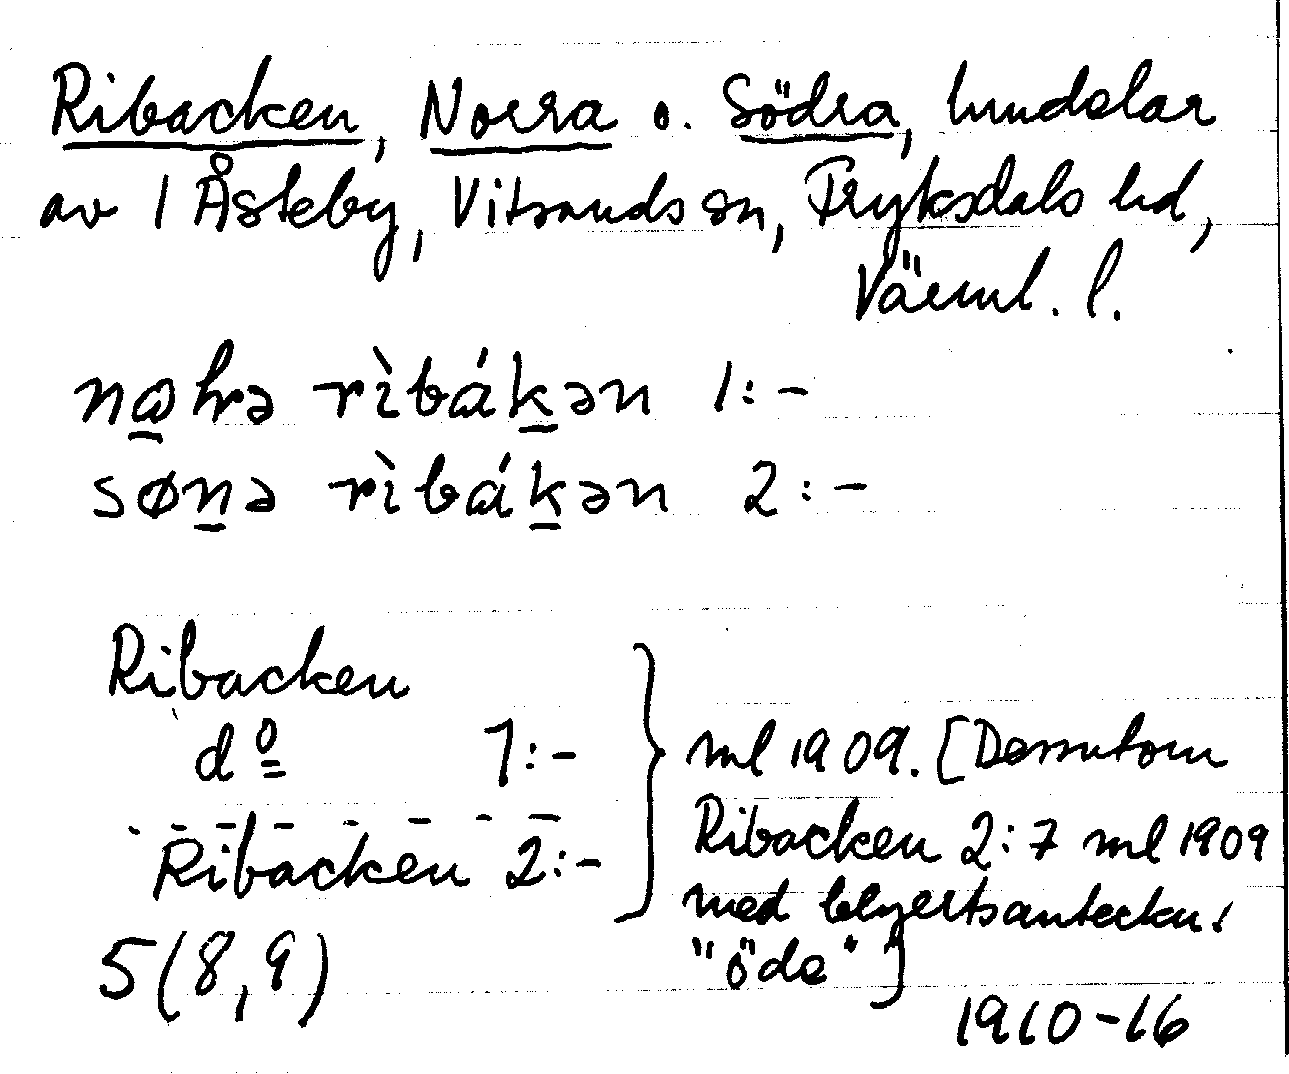 Ribacken, Norra o. Södra, hmdelar
av 1 Åsteby, Vitsands sn, Fryksdals hd,
Värml. l.
na̲hrə rìbák̲ən 1:-
søn̲ə rìbák̲ən 2:-
Ribacken
dº 1:-
Ribacken 2:-
ml 1909. [Dessutom
Ribacken 2:7 ml 1909
med blyertsanteckn.
"öde"]
5(8,9)
1910-16